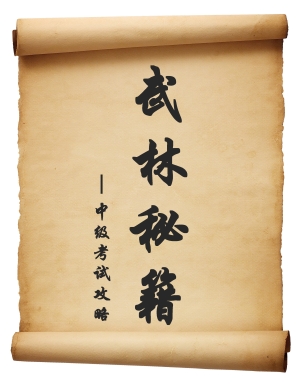 武林秘籍
—中级考试攻略